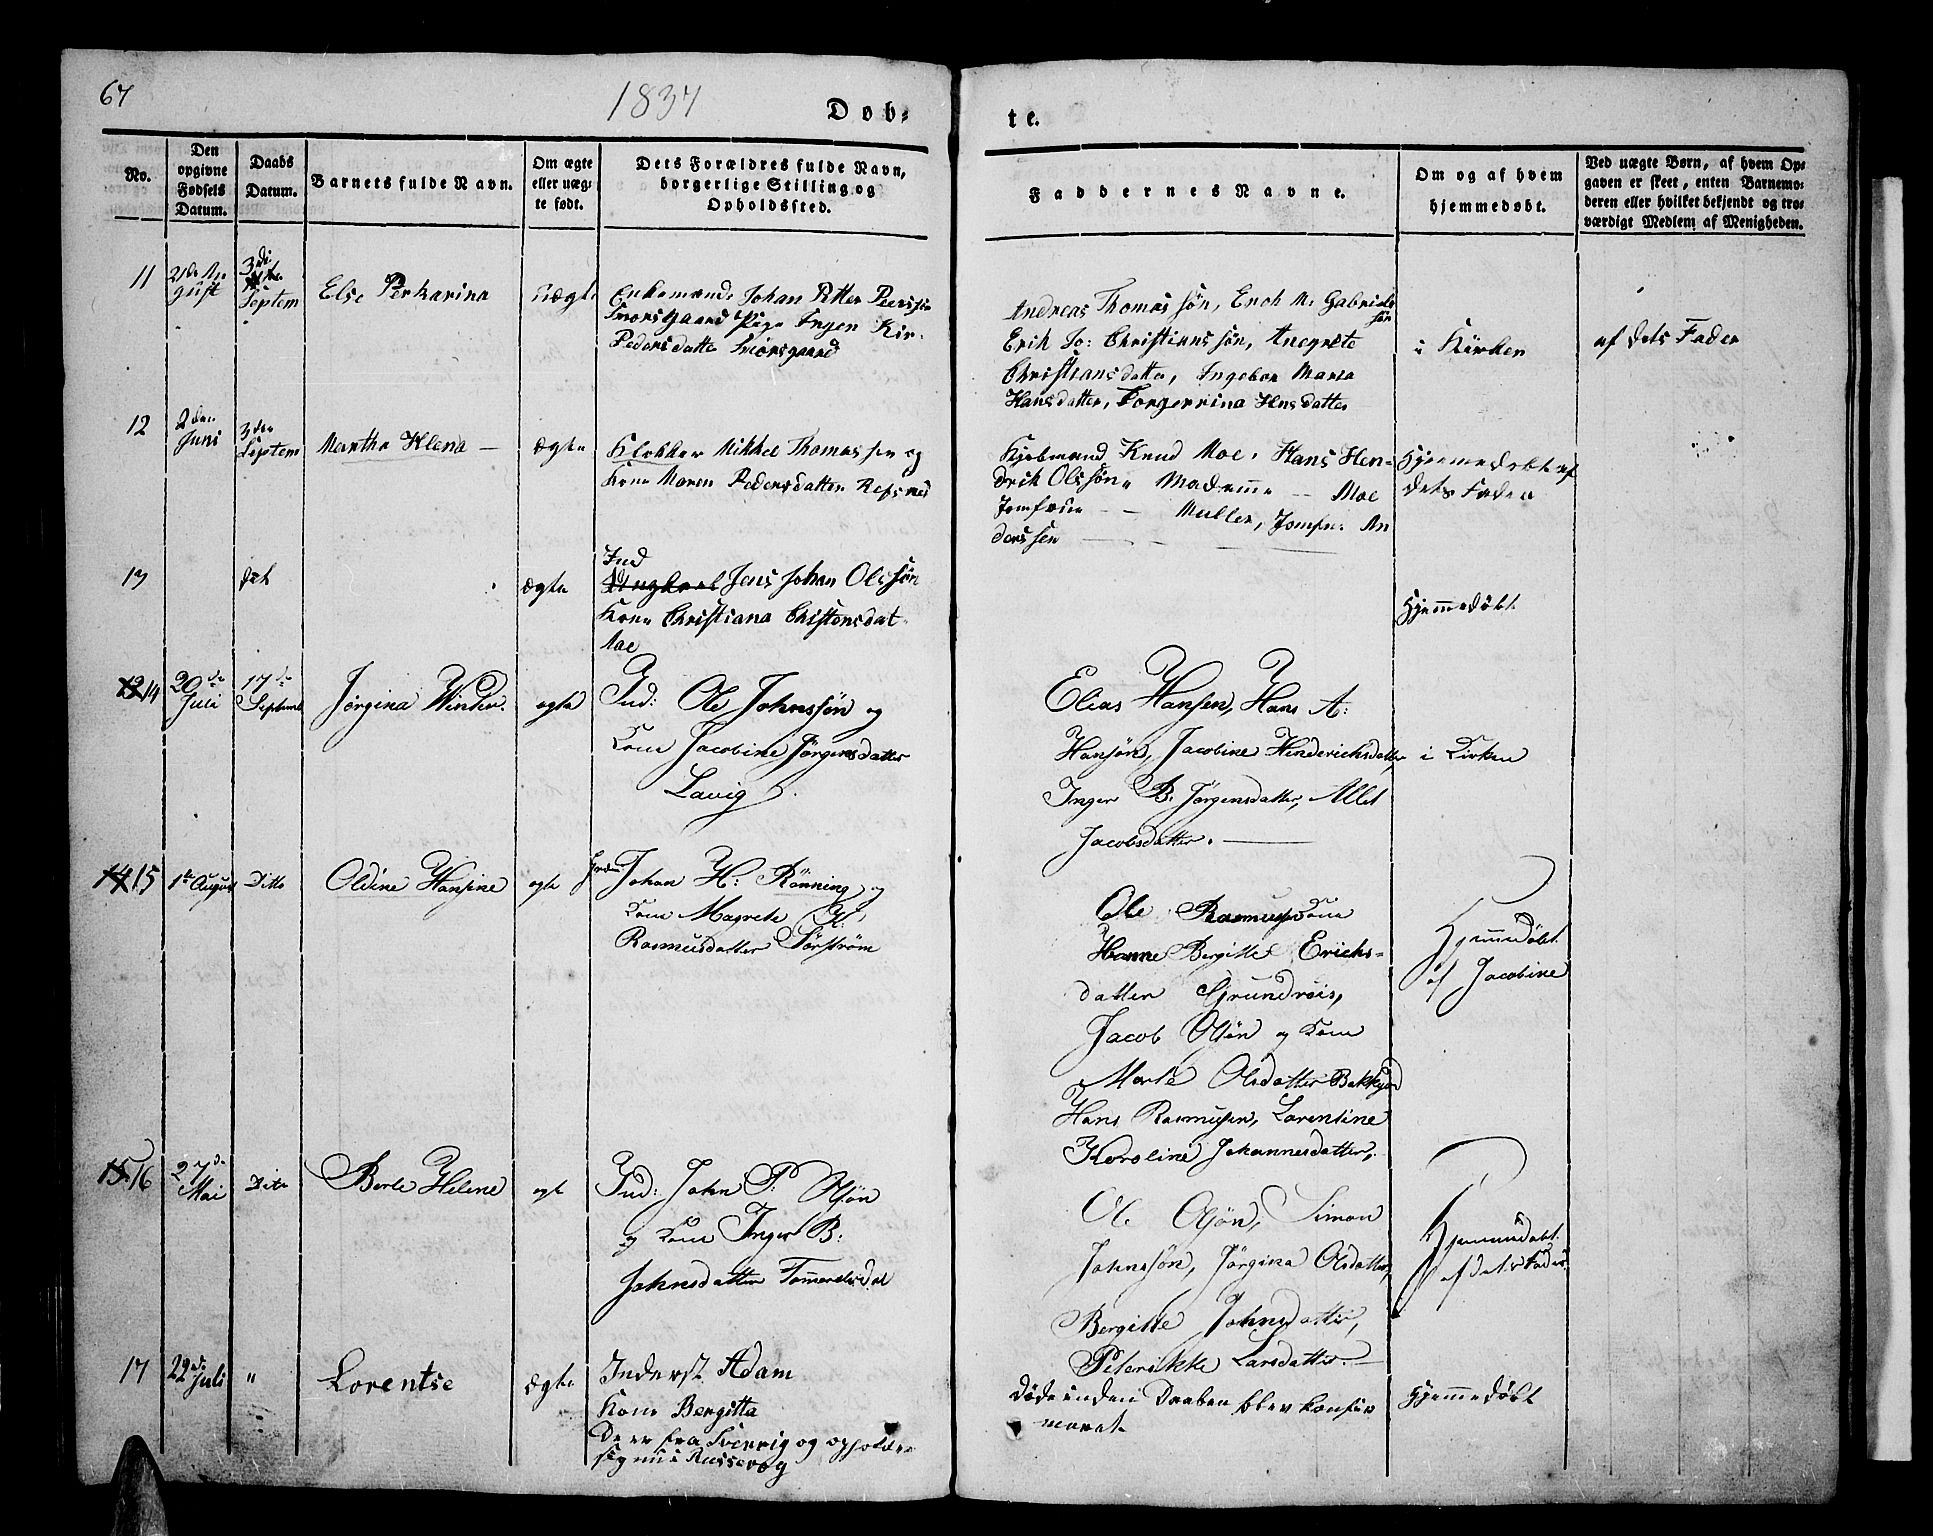 67
1837
Døb-
te.
No.
Den
opgivne
Fødsels
Datum.
Daabs
Datum.
Barnets fulde Navn.
Om ægte
eller uæg-
te født.
Dets Forældres fulde Navn,
borgerlige Stilling og
Opholdssted.
Faddernes Navne.
Om og af hvem
hjemmedøbt.
Ved uægte Børn, af hvem Op-
gaven er skeet, enten Barnemo-
deren eller hvilket bekjendt og tro-
værdigt Medlem af Menigheden.
11
2de Au
gust
3di
Septem
Else Perkarina
Uægte
Enkemand Johan Petter Peerssen
Pige Inger Kir-
Pedersdatte
Andreas Thomassøn, Erich M. Gabriels
søn
Erik Jo: Christianssøn, Anegrete
Christiansdatter, Ingebor Maria
Hansdatter, Torgerrina Hansdatter
i Kirken
af dets Fader
12
2den
Juni
3den
Septem
Martha Helena —
ægte
Klokker Mikkel Thomassen og
Kone Maren Pedersdatter Refsnes
Kjøbmand Knud Moe, Hans Hen-
drik Olssøn, Madame — Moe
Jomfrue — — Muller, Jomfru: An
derssen
Hjemmedøbt af
dets Fader
13
det
ægte
Ind
Jens Johan Olssøn
Kone Christiana Christensdat-
Hjemmedøbt
14
20de
Juli
17de
Septemb
Jørgina Winter.
ægte
Ind: Ole Johnssøn og
Kone Jacobine Jørgensdatter
Lavig.
Elias Hansen, Hans A:
Hansøn, Jacobine Hinderichsdatter
Inger B. Jørgensdatter, Allet
Jacobsdatter. —
i Kirken
15
1te August
Ditto
Oldine Hansine
ægte
Johan H: Rønning og
Kone Magrete H:
Rasmusdatter Sørstrøm
Ole Rasmusen Kone
Hanne Bergitte Erichs-
datter Grundrois,
Jacob Olsøn og Kone
Marte Olsdatter Bakkejord
Hans Rasmusen, Lorentine
Karoline Johannesdatter,
Hjemmedøbt
af Jacobine
16
27de
Mai
Dito
Berte Helene
ægt
Ind: John P: Olsøn
og Kone Inger B:
Johnsdatter Tommerelvdal
Ole Olsøn, Simon
Johnssøn, Jørgina Olsdatter,
Bergitte Johnsdatter,
Peterikke Larsdatter. —
Hjemmedøbt
af dets Fader
17
22de
Juli
"
Lorentse
ægte
Inderst Adam
Kone Bergitta
De er fra Sverrig og opholder
sig nu i Russevog
Døde inden Daaben blev konfir
meret
Hjemmedøbt